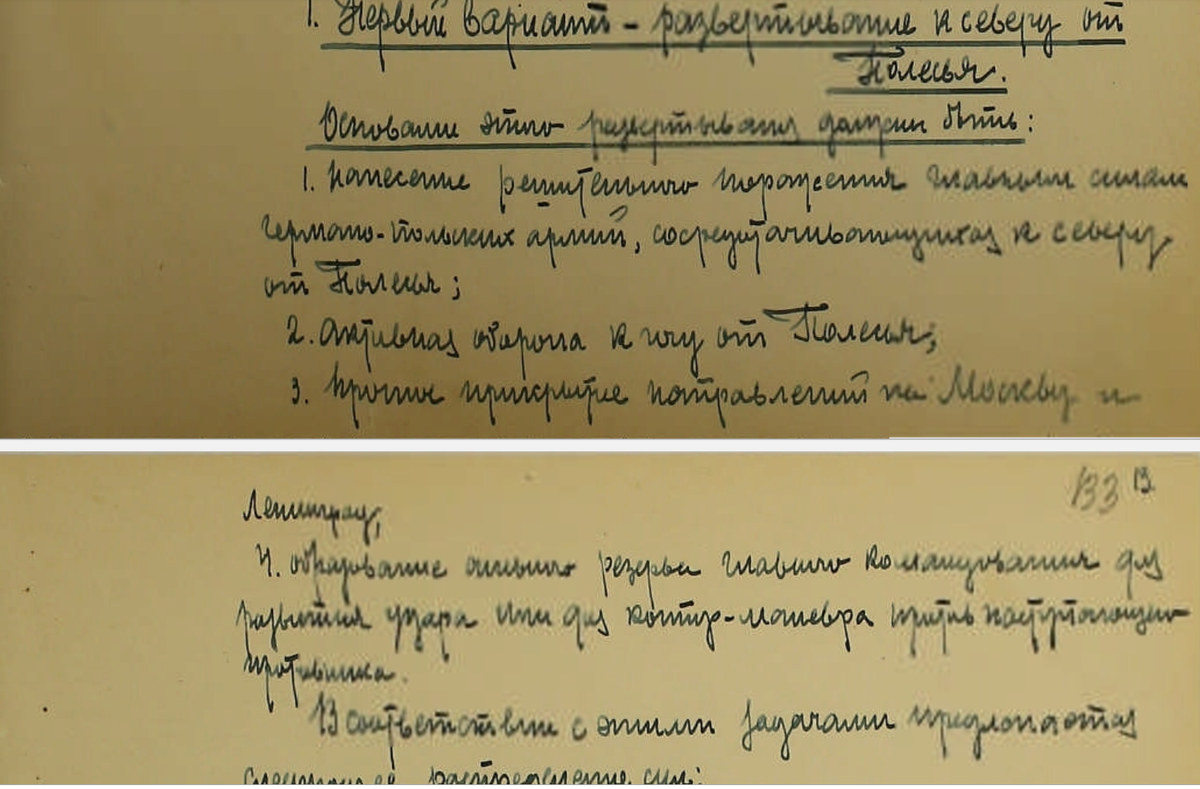 1. Первый вариант - развертывание к северу от
Полесья.
Основами этого развертывания должны быть:
1. Нанесение решительного поражения главным силам
германо-польских армий, сосредотачивающихся к северу
от Полесья;
2. Активная оборона к югу от Полесья;
3. Прочное прикрытие направлений на Москву и
133 13
Ленинград;
4. образование сильного резерва главного командования для
развития удара или для контр-маневра против наступающего
противника.
В соответствии с этими задачами предлагается
следующее распределение сил: